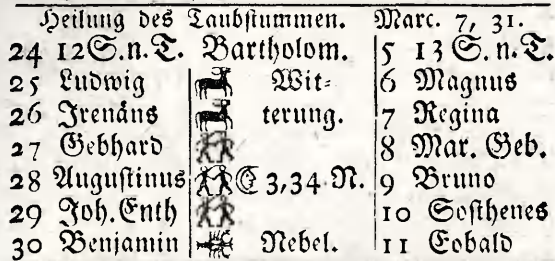 Heilung des Taubstummen. Marc. 7, 31.
24 12 S. n. T. Bartholom. 5 13 S. n. T.
25 Ludwig Wit= 6 Magnus
26 Irenäns terung. 7 Regina
27 Gebhard 8 Mar. Geb.
28 Augustinus ☾ 3,34 N. 9 Bruno
29 Joh. Enth 10 Sosthenes
30 Benjamin Nebel. 11 Eobald